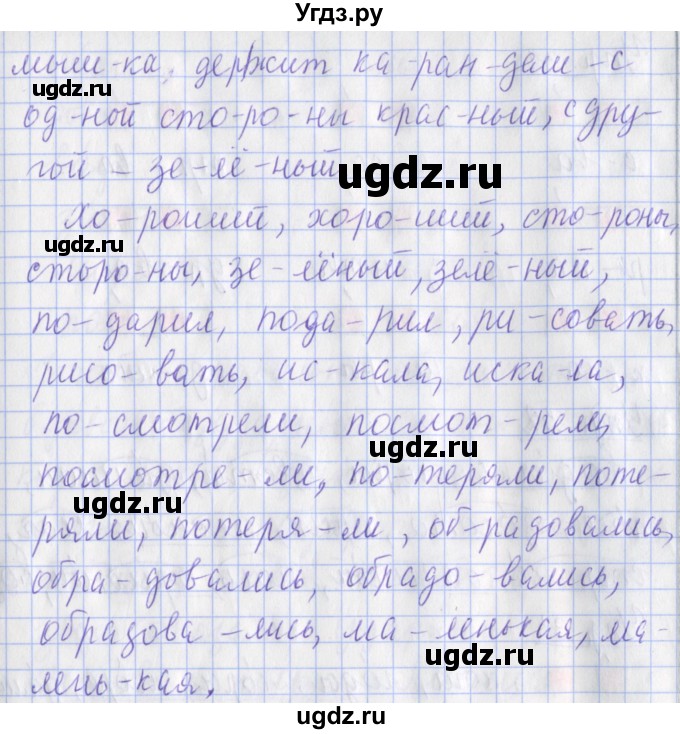 Угдз.ру
мыш-ка, держит ка-ран-даш - с
од-ной сто-ро-ны крас-ный, с дру-
гой - зе-лё-ный.
ugdz.ru
Хо-роший, хоро-ший, сто-роны,
ugdz.ru
сторо-ны, зе-лёный, зелё-ный,
по-дарил, пода-рил, ри-совать,
ugdz.ru
рисо-вать, ис-кала, иска-ла,
по-смотрели, посмот-рели,
ugdz.ru
посмотре-ли, по-теряли, поте-
ugdz.ru
ряли, потеря-ли, об-радовались,
обра-довались, обрадо-вались,
ugdz.ru
обрадова-лись, ма-ленькая, ма-
ugdz.ru
лень-кая.
ugdz.ru